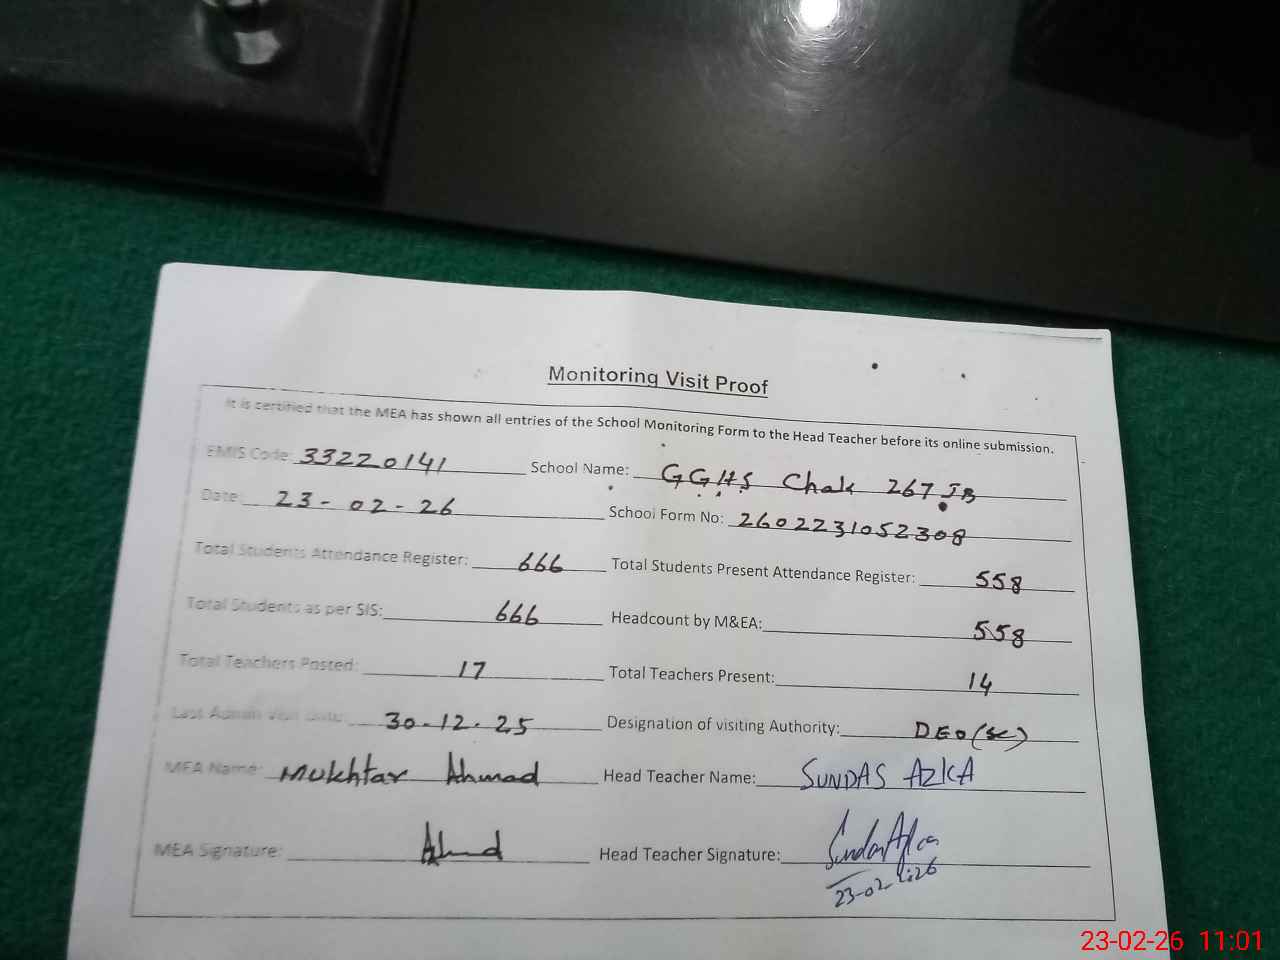 Monitoring Visit Proof
It is certified that the MEA has shown all entries of the School Monitoring Form to the Head Teacher before its online submission.
EMIS Code: 33220141 School Name: GGHS Chak 267 JB
Date: 23-02-26 School Form No: 2602231052308
Total Students Attendance Register: 666 Total Students Present Attendance Register: 558
Total Students as per SIS: 666 Headcount by M&EA: 558
Total Teachers Posted: 17 Total Teachers Present: 14
Last Admin Visit Date: 30-12-25 Designation of visiting Authority: DEO (SE)
MEA Name: Mukhtar Ahmad Head Teacher Name: SUNDAS AZKA
MEA Signature: Ahmd Head Teacher Signature: Sundas Azka
23-02-26
23-02-26 11:01